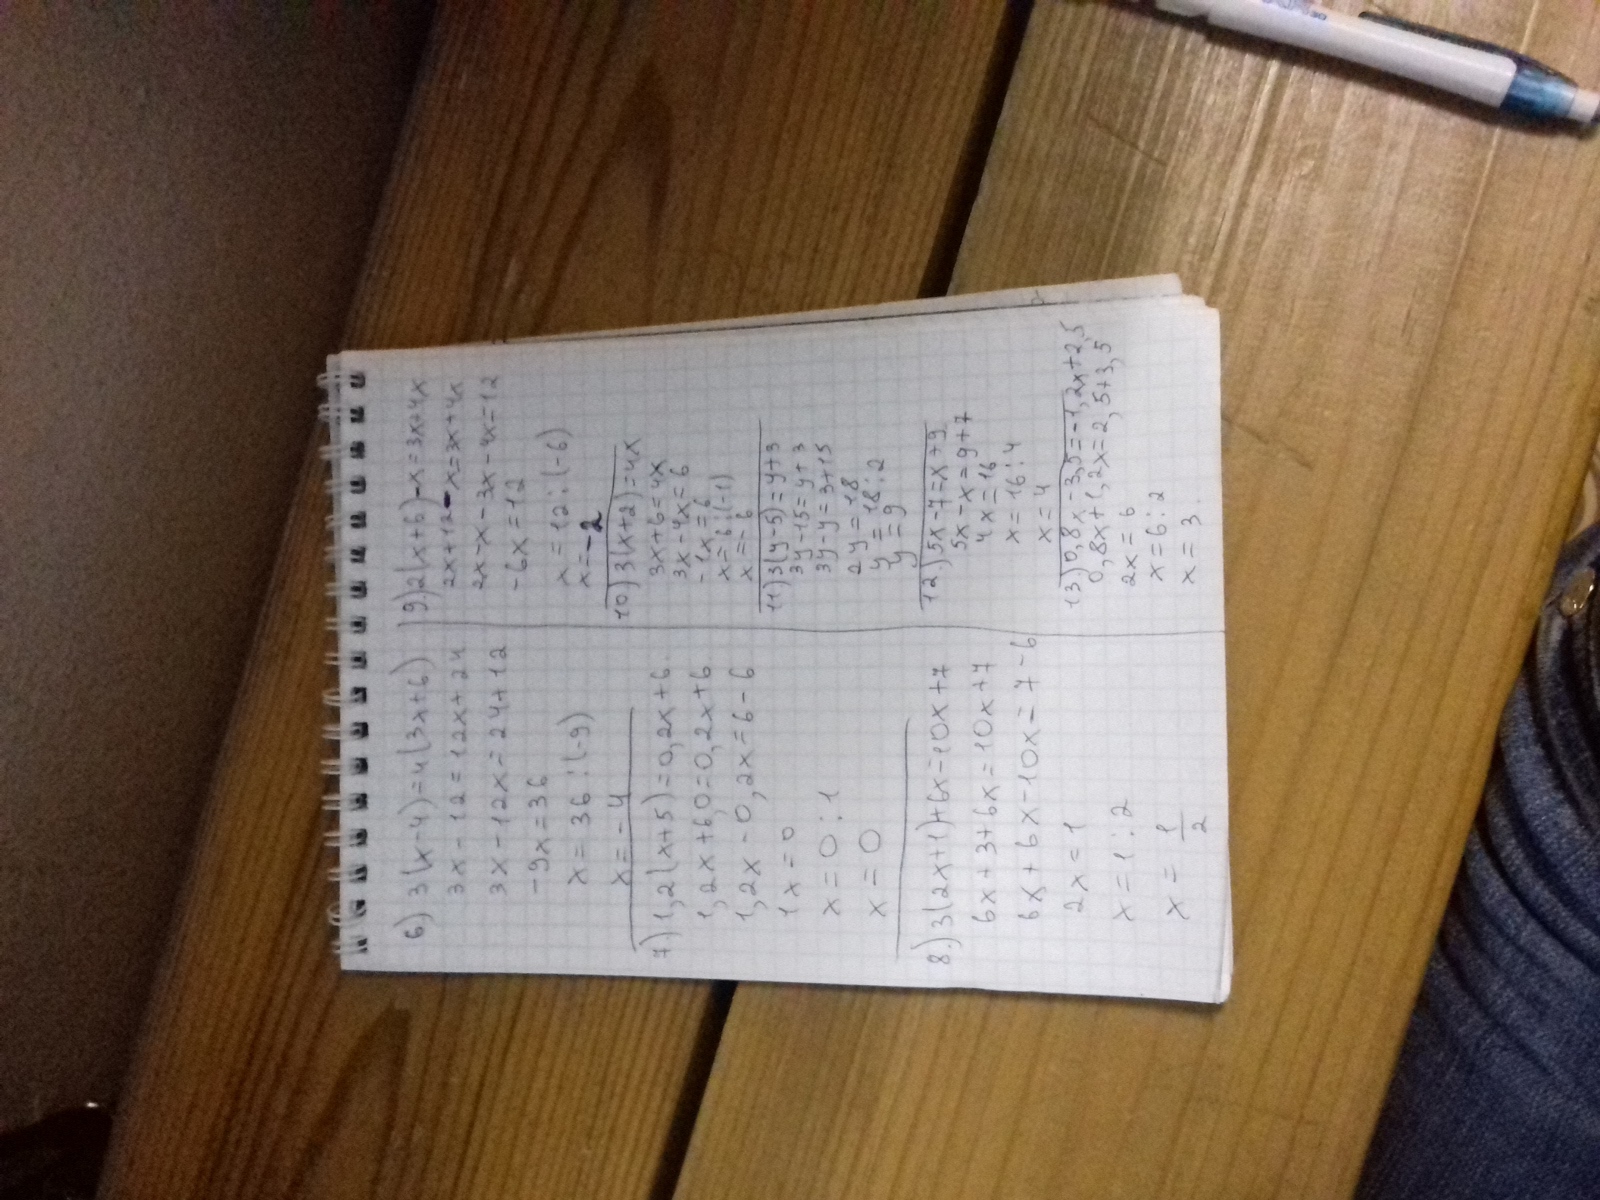 6) 3(x-4)=4(3x+6)
3x-12=12x+24
3x-12x=24+12
-9x=36
x=36:(-9)
x=-4
7.) 1,2(x+5)=0,2x+6.
1,2x+6,0=0,2x+6
1,2x-0,2x=6-6
1x=0
x=0:1
x=0
8.) 3(2x+1)+6x=10x+7
6x+3+6x=10x+7
6x+6x-10x=7-6
2x=1
x=1:2
x=1/2
9.) 2(x+6)-x=3x+4x
2x+12-x=3x+4x
2x-x-3x-4x=12
-6x=12
x=12:(-6)
x=-2
10.) 3(x+2)=4x
3x+6=4x
3x-4x=6
-1x=6
x=6:(-1)
x=-6
11.) 3(y-5)=y+3
3y-15=y+3
3y-y=3+15
2y=18
y=18:2
y=9
12.) 5x-7=x+9.
5x-x=9+7
4x=16
x=16:4
x=4
13.) 0,8x-3,5=-1,2x+2,5
0,8x+1,2x=2,5+3,5
2x=6
x=6:2
x=3.